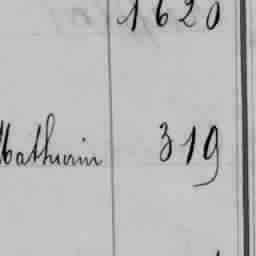 1620
Mathurin 319